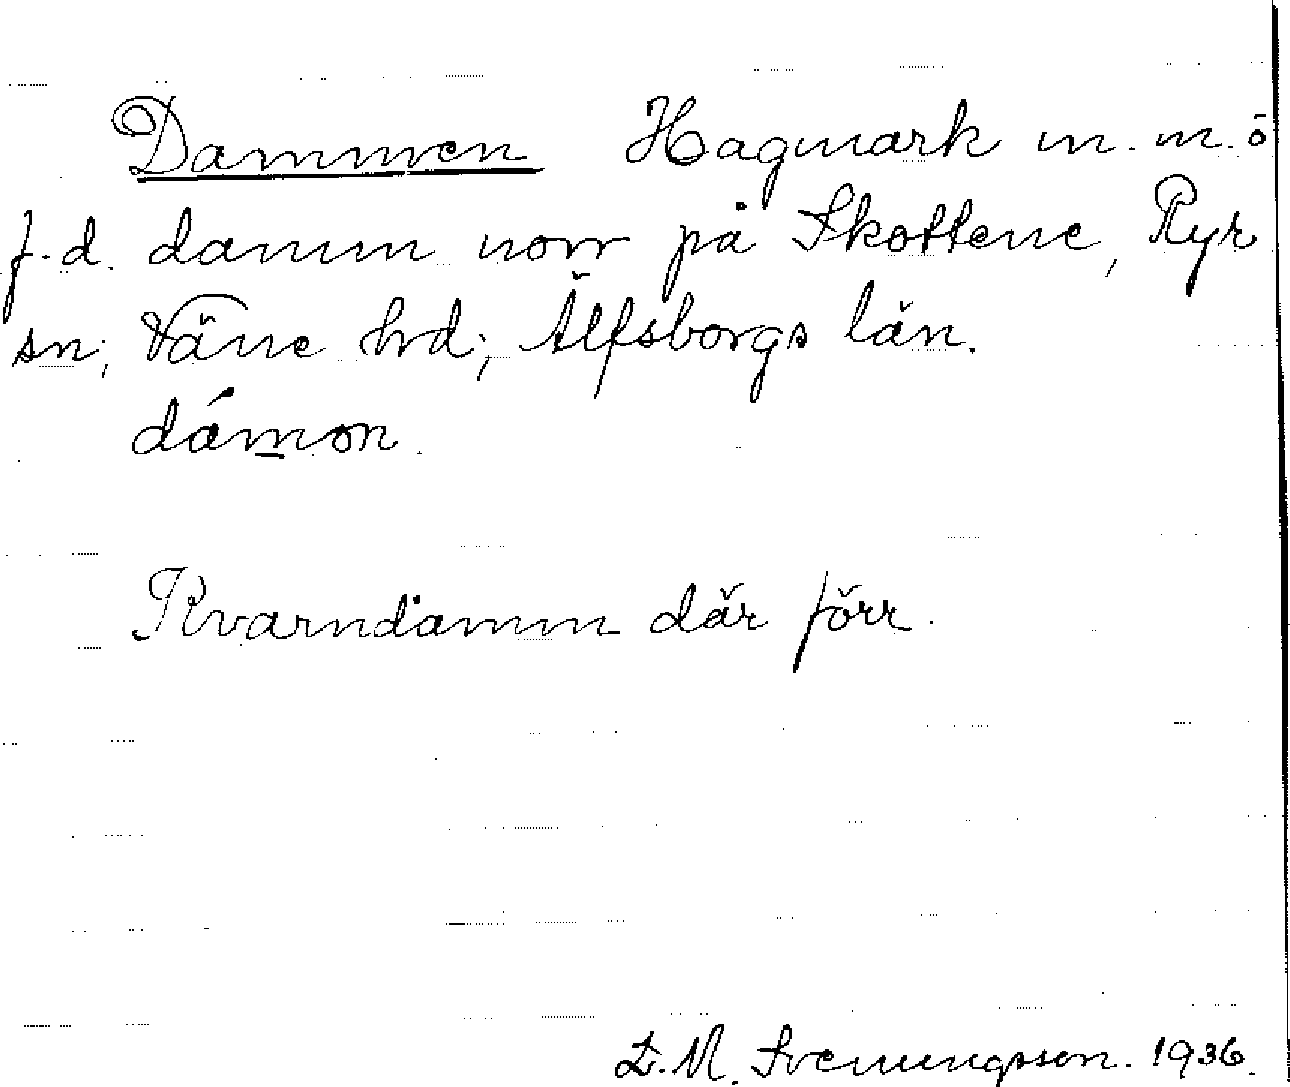 Dammen Hagmark m. m. ö
f.d. damm norr på Skottene, Ryr
sn; Väne hd; Älfsborgs län.
dámon.
Kvarndamm där förr.
E. M. Svenungsson. 1936.